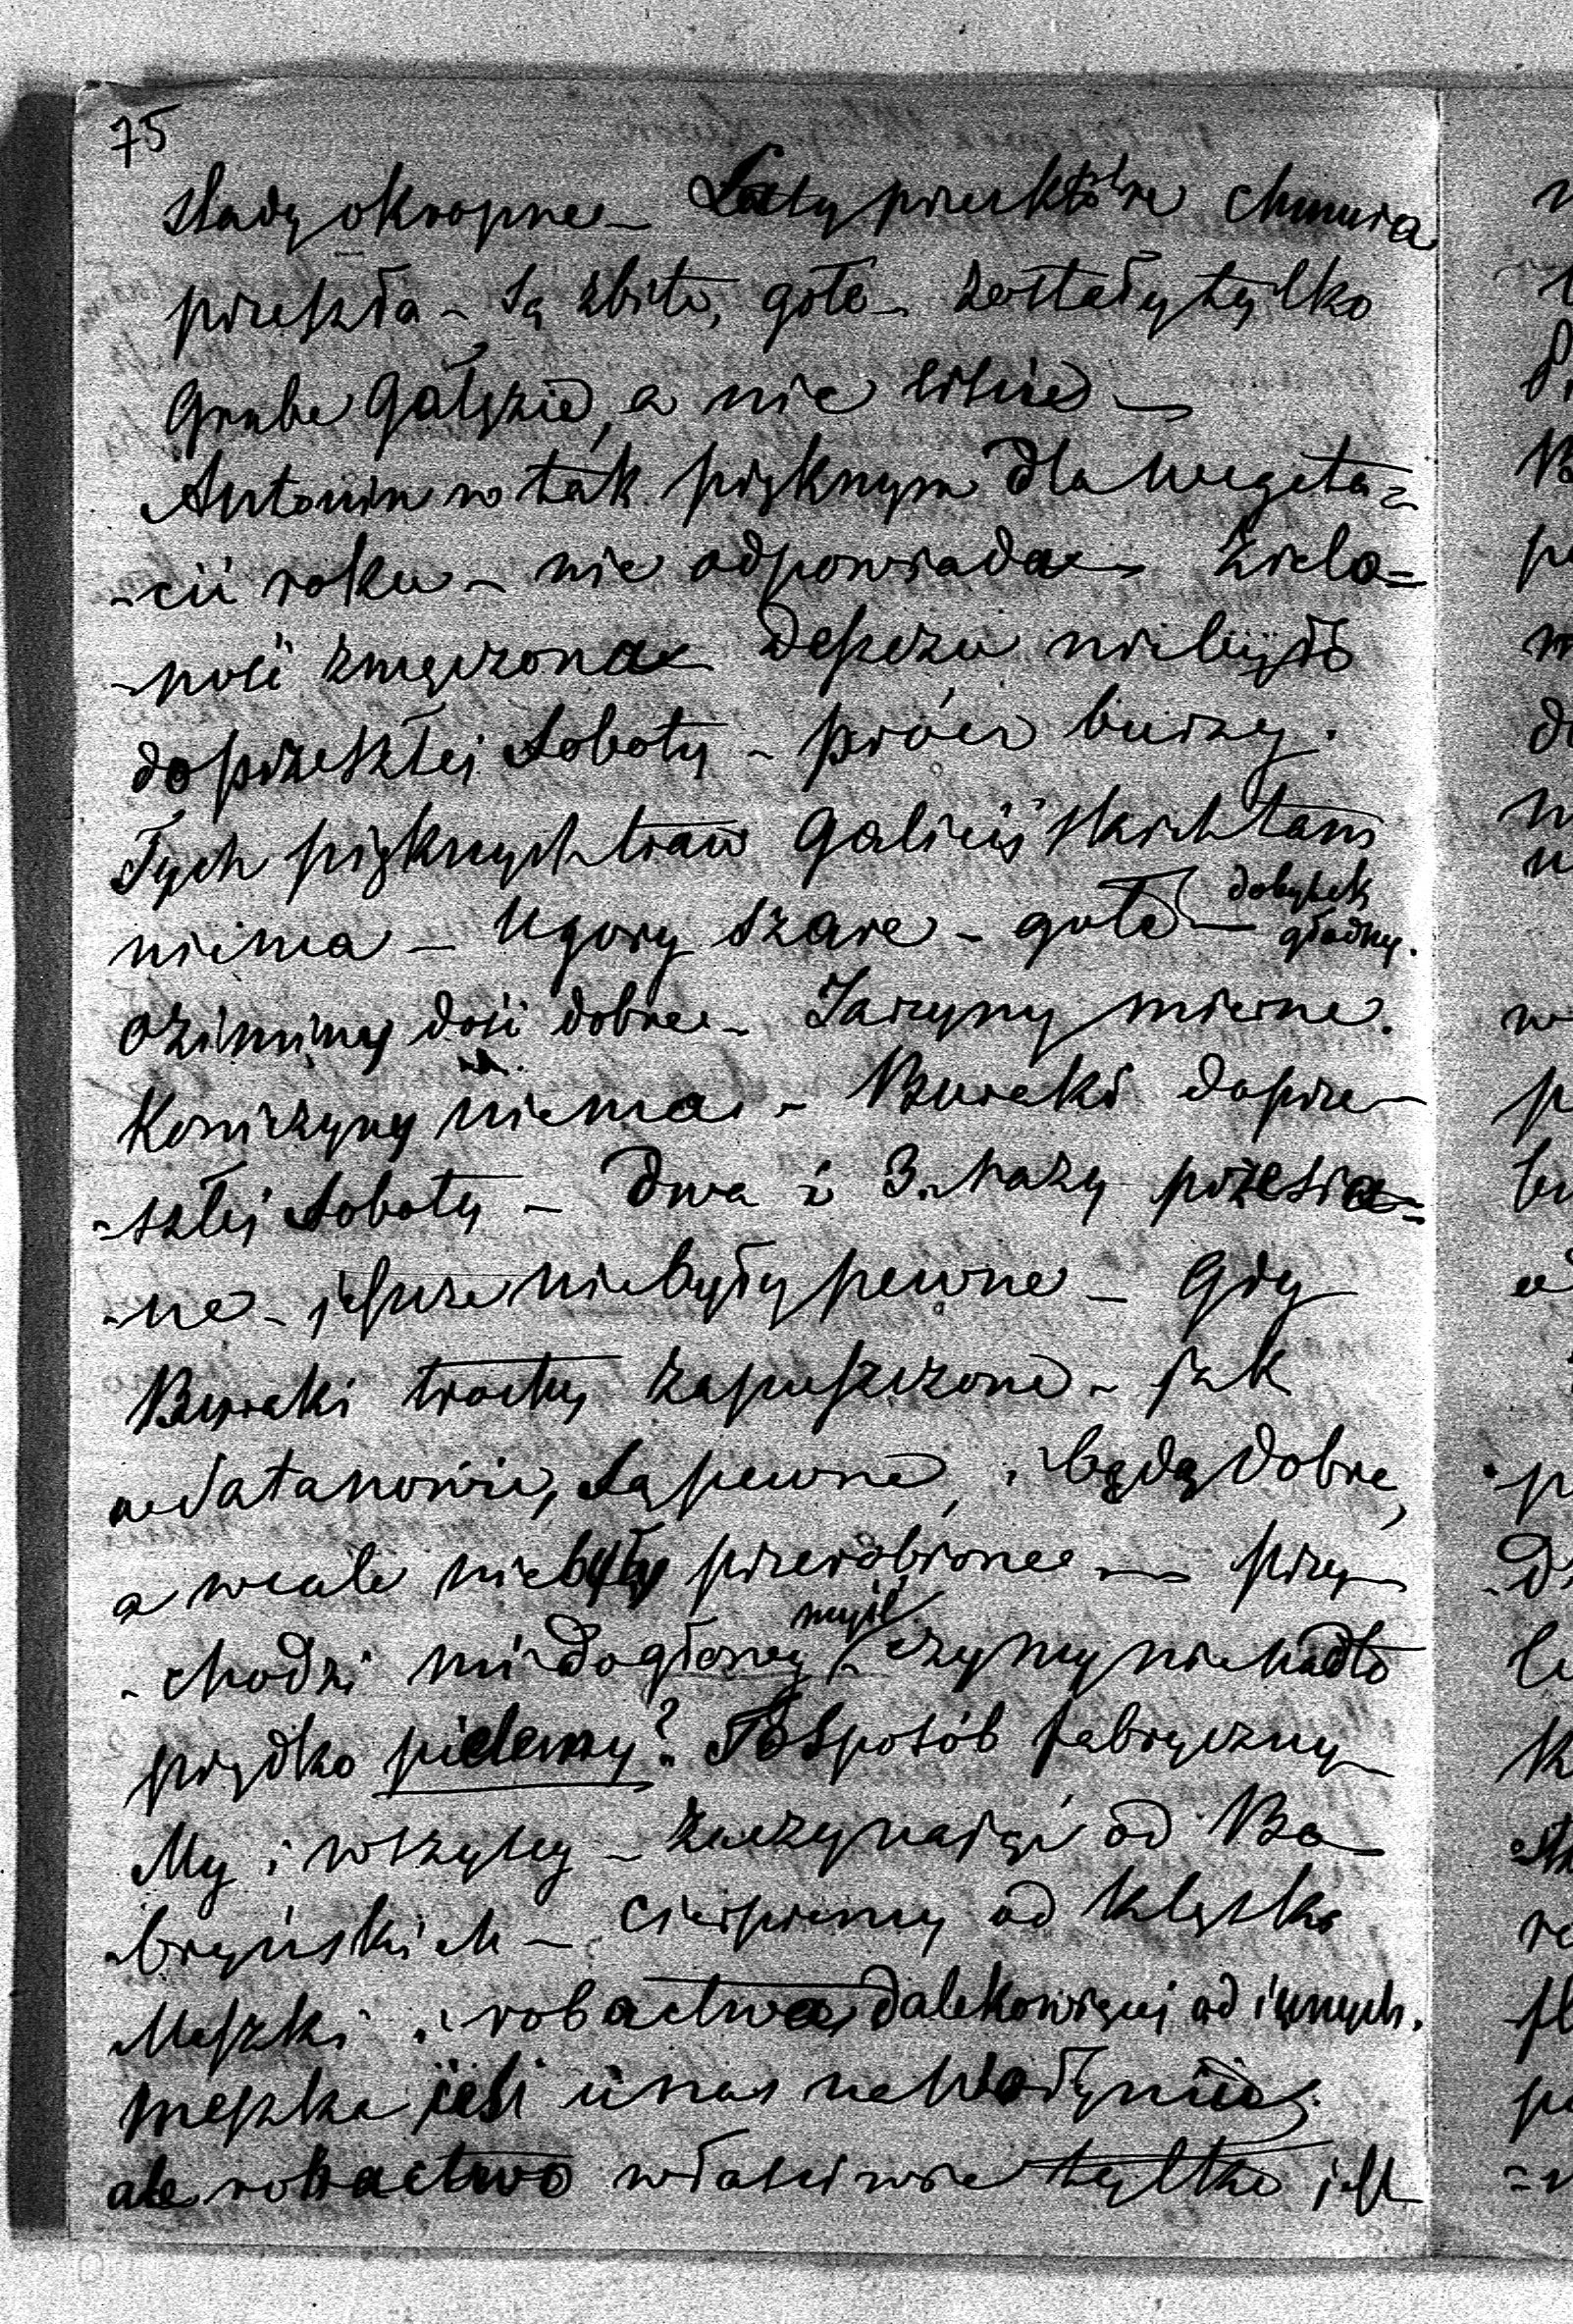 75
ślady okropne – Lasy przez które chmura
przeszła – są zbite, gołe – zostały tylko
Grube Gałęzie, a nic liście –
Antonin w tak pięknym dla wegeta=
-cii roku – nie odpowiada – Zielo=
-ność zmęczona – Deszczu niebyło
do przeszłej Soboty – prócz burzy.
Tych pięknych traw Galicijskich tam
niema – Ugory szare – gołe – dobytek
głodny.
Ozimimy dość dobre – Jarzyny mierne.
Koniczyny niema – Buraki doprze-
-szłej Soboty – Dwa i 3. razy przesia=
-ne – jeszcze niebyły pewne – Gdy
Buraki trochę zapuszczone – jak
w Satanowie, są pewne, i będą dobre,
a wcale niebyły przerobione – przy-
-chodzi mi dogłowy myśl – czy my nie nadto
prędko pielemy? To Sposób fabryczny
My i wszyscy – zaczynając od Bo-
-bryńskich – cierpiemy od klęski
Meszki i robactwa, daleko więcej od innych.
meszka jest i u nas na Wołyniu,
ale robactwo właściwie tylko jest